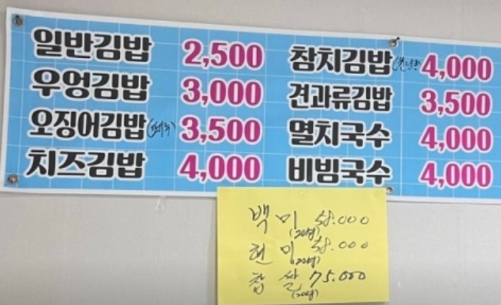 일반김밥 2,500
우엉김밥 3,000
오징어김밥 3,500
치즈김밥 4,000
참치김밥 4,000
견과류김밥 3,500
멸치국수 4,000
비빔국수 4,000
백미 58.000
(20kg)
현미 58.000
(20kg)
찹쌀 75.000
(20kg)